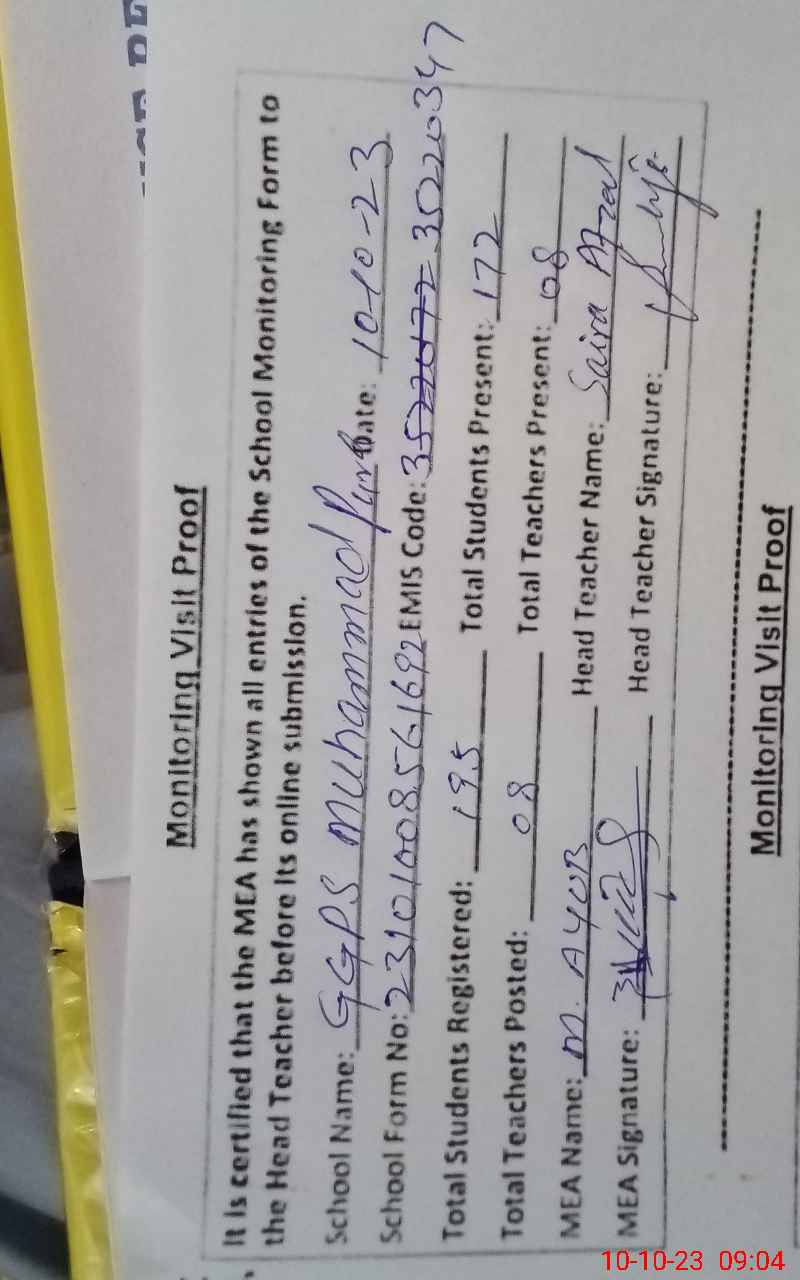 Monitoring Visit Proof
It is certified that the MEA has shown all entries of the School Monitoring Form to
the Head Teacher before its online submission.
School Name: GGPS Muhammad Pura Date: 10-10-23
School Form No: 23101008561692 EMIS Code: 35220347
Total Students Registered: 195 Total Students Present: 172
Total Teachers Posted: 08 Total Teachers Present: 08
MEA Name: M. AYOB Head Teacher Name: Saira Afzal
MEA Signature: Head Teacher Signature:
Monitoring Visit Proof
10-10-23 09:04